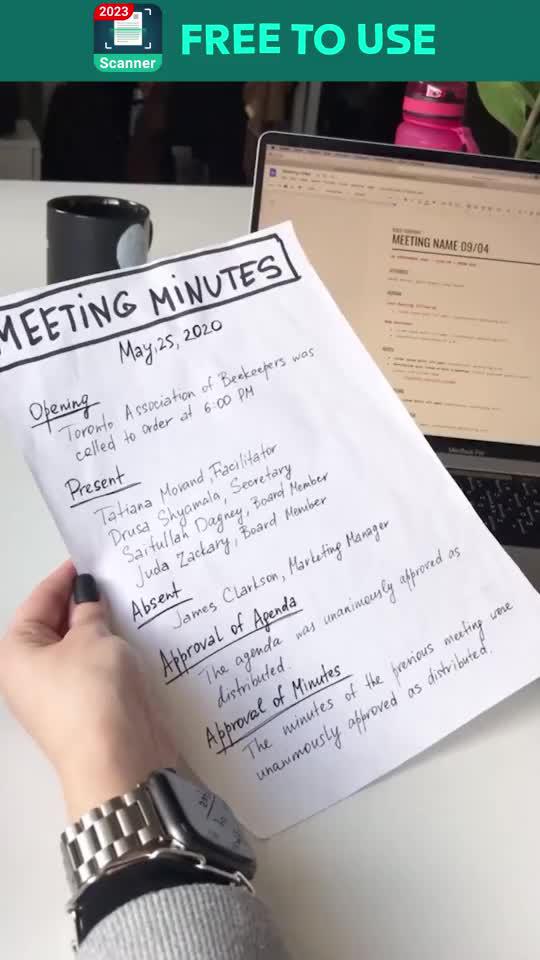 2023
Scanner
FREE TO USE
MEETING NAME 09/04
MacBook Pro
MEETING MINUTES
May, 25, 2020
Opening
Toronto Association of Beekeepers was
called to order at 6:00 PM
Present
Tatiana Morand, Facilitator
Drusa Shyamala, Secretary
Saifullah Dagney, Board Member
Juda Zackary, Board Member
Absent
James Clarkson, Marketing Manager
Approval of Agenda
The agenda was unanimously approved as
distributed.
Approval of Minutes
The minutes of the previous meeting were
unanimously approved as distributed.